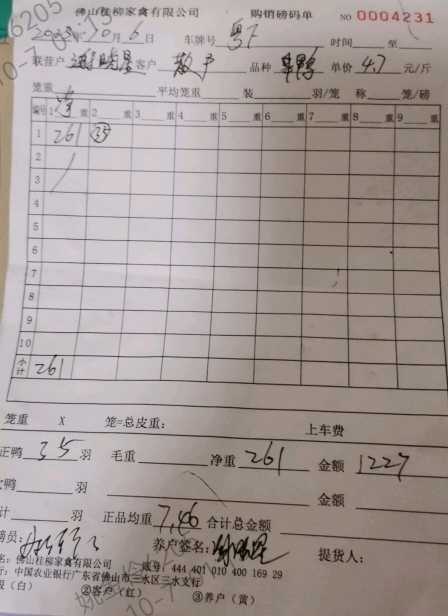 佛山桂柳家禽有限公司 购销磅码单 NO 0004231
2023年10月6日 车牌号 粤 时间 至
联营户 客户 散户 品种 鸭 单价 4.7 元/斤
笼重 平均笼重 装 羽/笼 称 笼/磅
编号 1 重 2 重 3 重 4 重 5 重 6 重 7 重 8 重 9 重
1 261 35
2
3
4
5
6
7
8
9
10
小计 261
笼重 X 笼=总皮重: 上车费
正鸭 35 羽 毛重 净重 261 金额 1227
鸭 羽 金额
计 羽 正品均重 7.46 合计总金额
磅员: 养户签名: 提货人:
名: 佛山桂柳家禽有限公司 账号: 444 401 010 400 169 29
行: 中国农业银行广东省佛山市三水区三水支行
(白) ②客户(红) ③养户(黄)